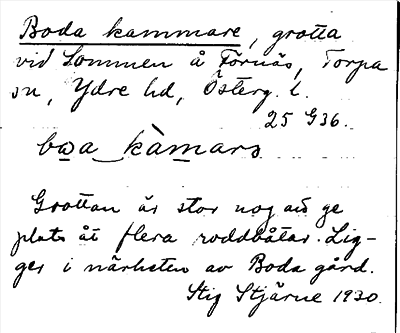 Boda kammare, grotta
vid Sommen å Törnäs, Torpa
sn, Ydre hd, Österg. l.
25 G36.
bωa kàmarɔ
Grottan är stor nog att ge
plats åt flera roddbåtar. Lig-
ger i närheten av Boda gård.
Stig Stjärne 1930.